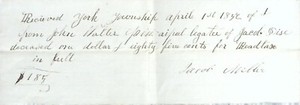 Received York Township April 1st 1852 of
from John Walter Principal legatee of Jacob
deceased one dollar & eighty five cents for
in full
$1.85
Jacob